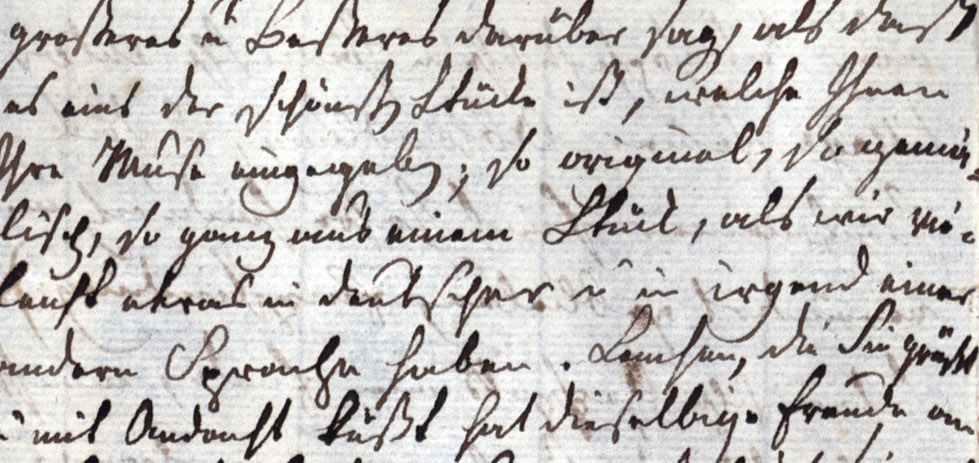 größeres u Besseres darüber sagen, als daß
es eins der schönsten Stücke ist, welche Ihnen
Ihre Muse eingegeben; so original, so genia-
lisch, so ganz aus einem Stück, als wir vie-
leicht etwas in deutscher u in irgend einer
andern Sprache haben. die Sie grüßt
u mit Andacht küßt hat dieselbige Freude an